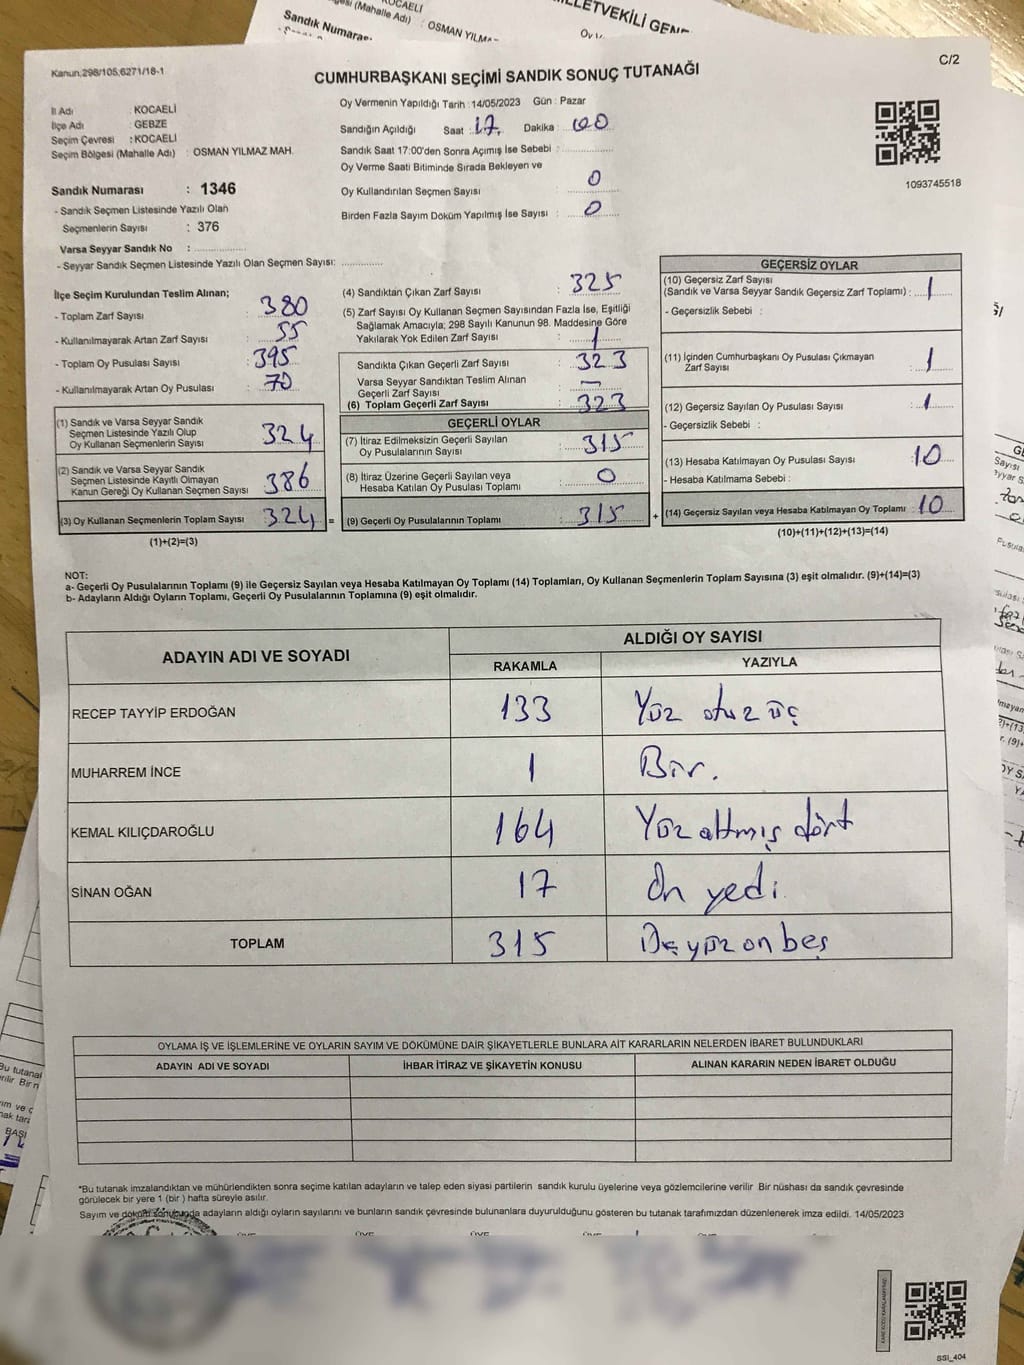 KOCAELİ
OSMAN YILMA
Sandık Numaras
LETVEKİLİ GENE
Kanun:298/105;6271/18-1
C/2
CUMHURBAŞKANI SEÇİMİ SANDIK SONUÇ TUTANAĞI
İl Adı : KOCAELİ
İlçe Adı : GEBZE
Seçim Çevresi : KOCAELİ
Seçim Bölgesi (Mahalle Adı) : OSMAN YILMAZ MAH.
Oy Vermenin Yapıldığı Tarih : 14/05/2023 Gün : Pazar
Sandığın Açıldığı Saat : 17 Dakika : 00
Sandık Saat 17:00'den Sonra Açımış İse Sebebi :
Oy Verme Saati Bitiminde Sırada Bekleyen ve
Oy Kullandırılan Seçmen Sayısı : 0
Birden Fazla Sayım Döküm Yapılmış İse Sayısı : 0
1093745518
Sandık Numarası : 1346
- Sandık Seçmen Listesinde Yazılı Olan
Seçmenlerin Sayısı : 376
Varsa Seyyar Sandık No :
- Seyyar Sandık Seçmen Listesinde Yazılı Olan Seçmen Sayısı:
İlçe Seçim Kurulundan Teslim Alınan;
- Toplam Zarf Sayısı : 380
- Kullanılmayarak Artan Zarf Sayısı : 55
- Toplam Oy Pusulası Sayısı : 395
- Kullanılmayarak Artan Oy Pusulası : 70
(1) Sandık ve Varsa Seyyar Sandık
Seçmen Listesinde Yazılı Olup
Oy Kullanan Seçmenlerin Sayısı 324
(2) Sandık ve Varsa Seyyar Sandık
Seçmen Listesinde Kayıtlı Olmayan
Kanun Gereği Oy Kullanan Seçmen Sayısı 386
(3) Oy Kullanan Seçmenlerin Toplam Sayısı 324 =
(1)+(2)=(3)
(4) Sandıktan Çıkan Zarf Sayısı : 325
(5) Zarf Sayısı Oy Kullanan Seçmen Sayısından Fazla İse, Eşitliği
Sağlamak Amacıyla; 298 Sayılı Kanunun 98. Maddesine Göre
Yakılarak Yok Edilen Zarf Sayısı : 1
Sandıkta Çıkan Geçerli Zarf Sayısı : 323
Varsa Seyyar Sandıktan Teslim Alınan
Geçerli Zarf Sayısı : —
(6) Toplam Geçerli Zarf Sayısı : 323
GEÇERLİ OYLAR
(7) İtiraz Edilmeksizin Geçerli Sayılan
Oy Pusulalarının Sayısı : 315
(8) İtiraz Üzerine Geçerli Sayılan veya
Hesaba Katılan Oy Pusulası Toplamı : 0
(9) Geçerli Oy Pusulalarının Toplamı : 315 +
GEÇERSİZ OYLAR
(10) Geçersiz Zarf Sayısı
(Sandık ve Varsa Seyyar Sandık Geçersiz Zarf Toplamı) : 1
- Geçersizlik Sebebi :
(11) İçinden Cumhurbaşkanı Oy Pusulası Çıkmayan
Zarf Sayısı : 1
(12) Geçersiz Sayılan Oy Pusulası Sayısı : 1
- Geçersizlik Sebebi :
(13) Hesaba Katılmayan Oy Pusulası Sayısı : 10
- Hesaba Katılmama Sebebi :
(14) Geçersiz Sayılan veya Hesaba Katılmayan Oy Toplamı : 10
(10)+(11)+(12)+(13)=(14)
NOT:
a- Geçerli Oy Pusulalarının Toplamı (9) ile Geçersiz Sayılan veya Hesaba Katılmayan Oy Toplamı (14) Toplamları, Oy Kullanan Seçmenlerin Toplam Sayısına (3) eşit olmalıdır. (9)+(14)=(3)
b- Adayların Aldığı Oyların Toplamı, Geçerli Oy Pusulalarının Toplamına (9) eşit olmalıdır.
ADAYIN ADI VE SOYADI
ALDIĞI OY SAYISI
RAKAMLA YAZIYLA
RECEP TAYYİP ERDOĞAN 133 Yüz otuz üç
MUHARREM İNCE 1 Bir.
KEMAL KILIÇDAROĞLU 164 Yüz altmış dört
SİNAN OĞAN 17 On yedi
TOPLAM 315 Üç yüz on beş
OYLAMA İŞ VE İŞLEMLERİNE VE OYLARIN SAYIM VE DÖKÜMÜNE DAİR ŞİKAYETLERLE BUNLARA AİT KARARLARIN NELERDEN İBARET BULUNDUKLARI
ADAYIN ADI VE SOYADI İHBAR İTİRAZ VE ŞİKAYETİN KONUSU ALINAN KARARIN NEDEN İBARET OLDUĞU
*Bu tutanak imzalandıktan ve mühürlendikten sonra seçime katılan adayların ve talep eden siyasi partilerin sandık kurulu üyelerine veya gözlemcilerine verilir Bir nüshası da sandık çevresinde
görülecek bir yere 1 (bir ) hafta süreyle asılır.
Sayım ve döküm sonucunda adayların aldığı oyların sayılarını ve bunların sandık çevresinde bulunanlara duyurulduğunu gösteren bu tutanak tarafımızdan düzenlenerek imza edildi. 14/05/2023
SSI_404